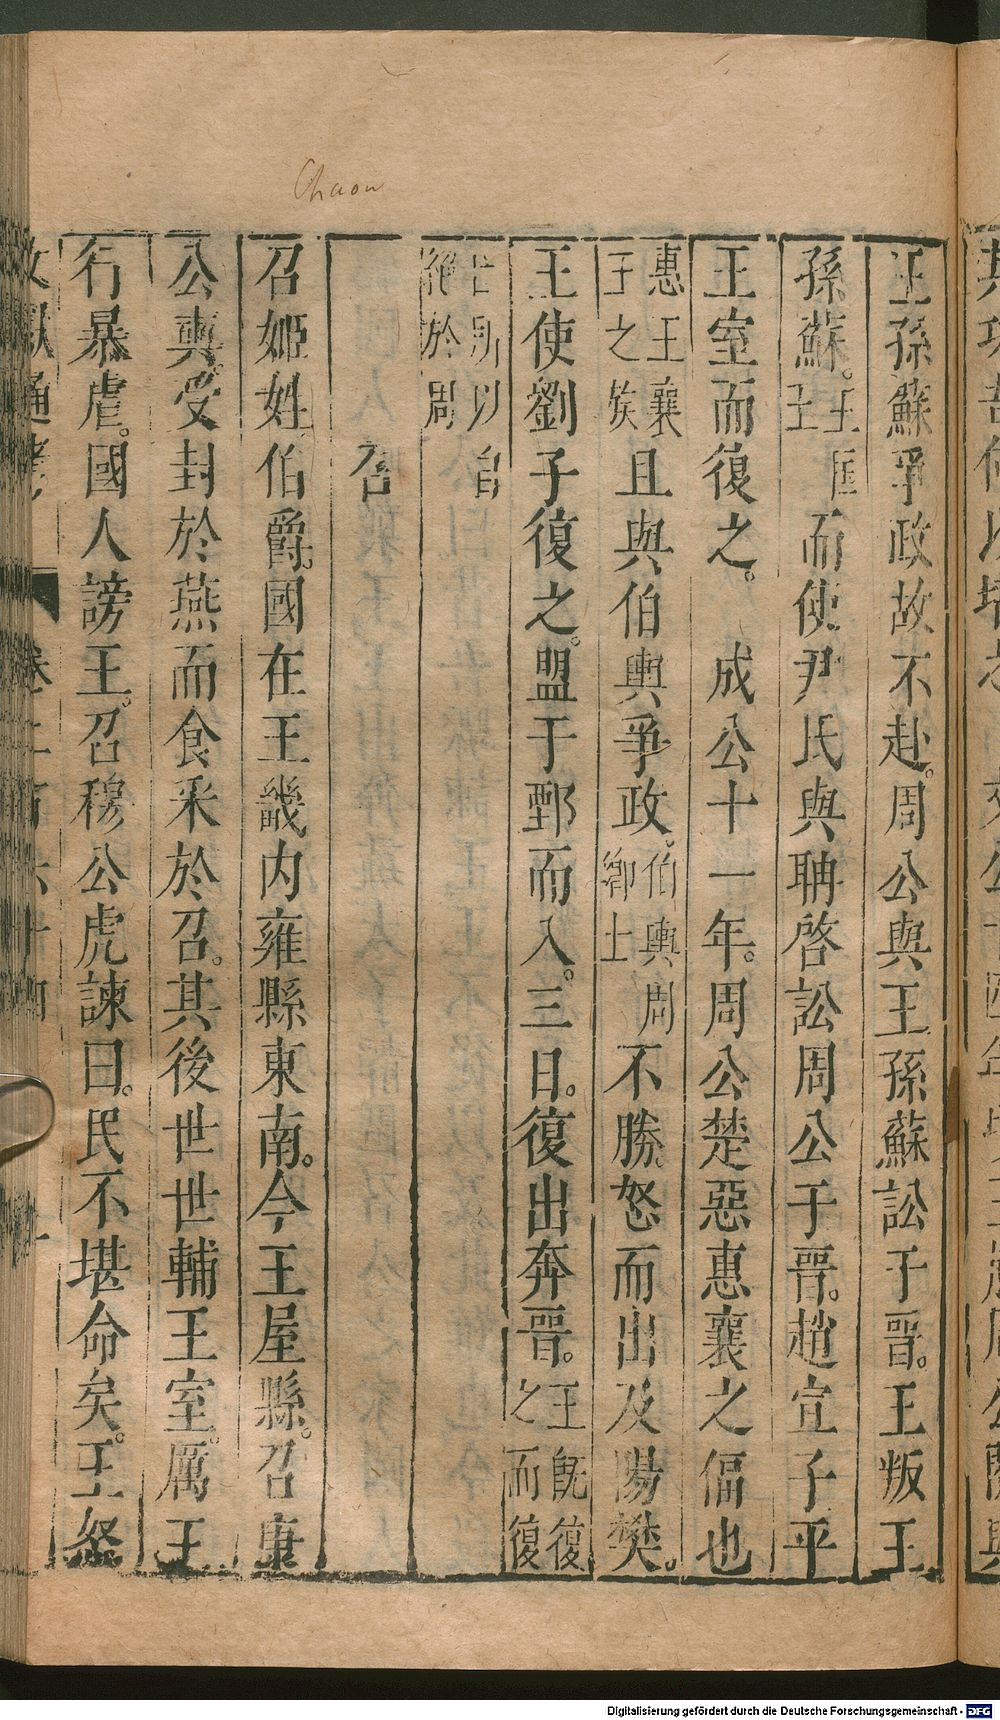 Chaou
王孫蘇爭政故不赴。周公與王孫蘇訟于晉。王叛王
孫蘇。王匡王而使尹氏與聃啓訟周公于晉。趙宣子平
王室而復之。　成公十一年。周公楚惡惠襄之偪也
惠王襄王之族且與伯輿爭政。伯輿周卿士不勝。怒而出及陽樊。
王使劉子復之。盟于鄄而入。三日。復出奔晉。王既復之而復
出所以自絕於周
召
召姬姓伯爵。國在王畿内雍縣東南。今王屋縣。召康
公奭。受封於燕而食采於召。其後世世輔王室。厲王
行暴虐。國人謗王。召穆公虎諫曰。民不堪命矣。王怒
Digitalisierung gefördert durch die Deutsche Forschungsgemeinschaft - DFG